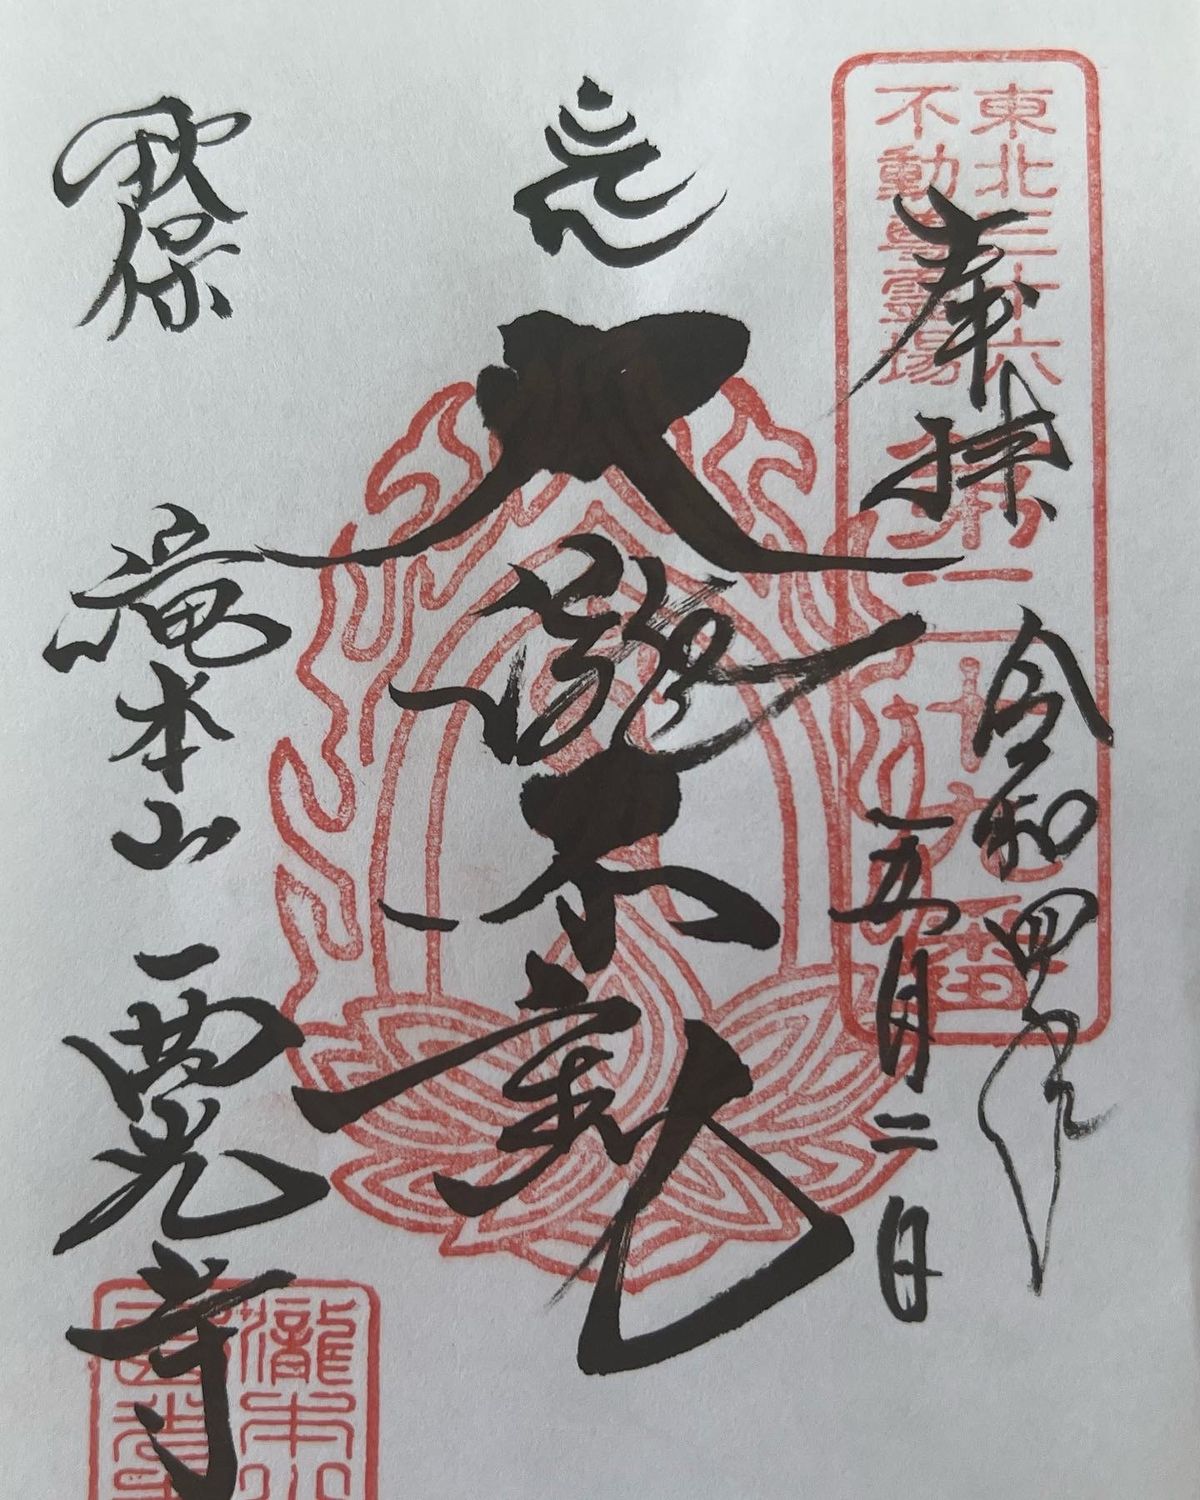 東北三十六
不動尊霊場
第二十九番
奉拝
令和四年
五月二日
大瀧不動
秋保
滝本山
西光寺
瀧本山